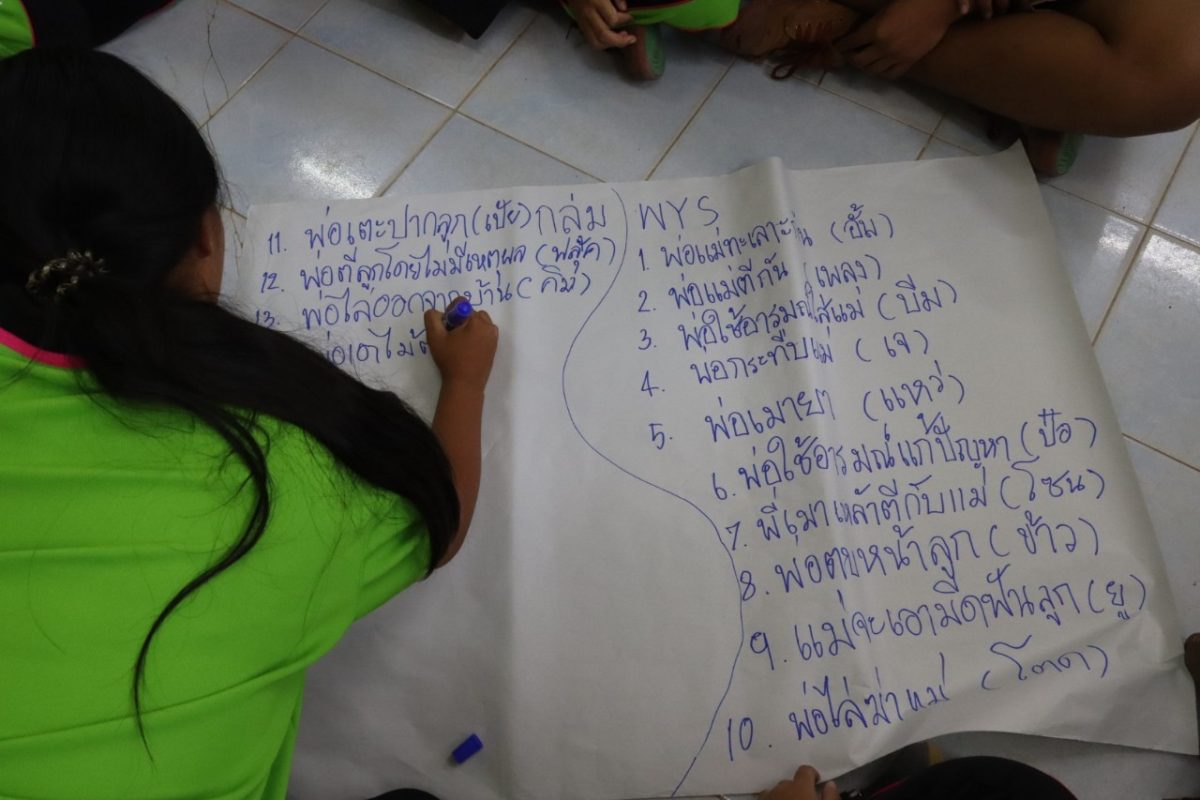 WYS
1. พ่อแม่ทะเลาะกัน (อั้ม)
2. พ่อแม่ตีกัน (เพลง)
3. พ่อใช้อารมณ์ใส่แม่ (บีม)
4. พ่อกระทืบแม่ (เจ)
5. พ่อเมายา (แหว่)
6. พ่อใช้อารมณ์แก้ปัญหา (ป๊อ)
7. พี่เมาเหล้าตีกับแม่ (โซน)
8. พ่อตุบหน้าลูก (ข้าว)
9. แม่จะเอามีดฟันลูก (ยู)
10. พ่อไล่ฆ่าแม่
11. พ่อเตะปากลูก (เป้ย) กลุ่ม
12. พ่อตีลูกโดยไม่มีเหตุผล (ฟลุ๊ค)
13. พ่อไล่ออกจากบ้าน
พ่อเอาไม้